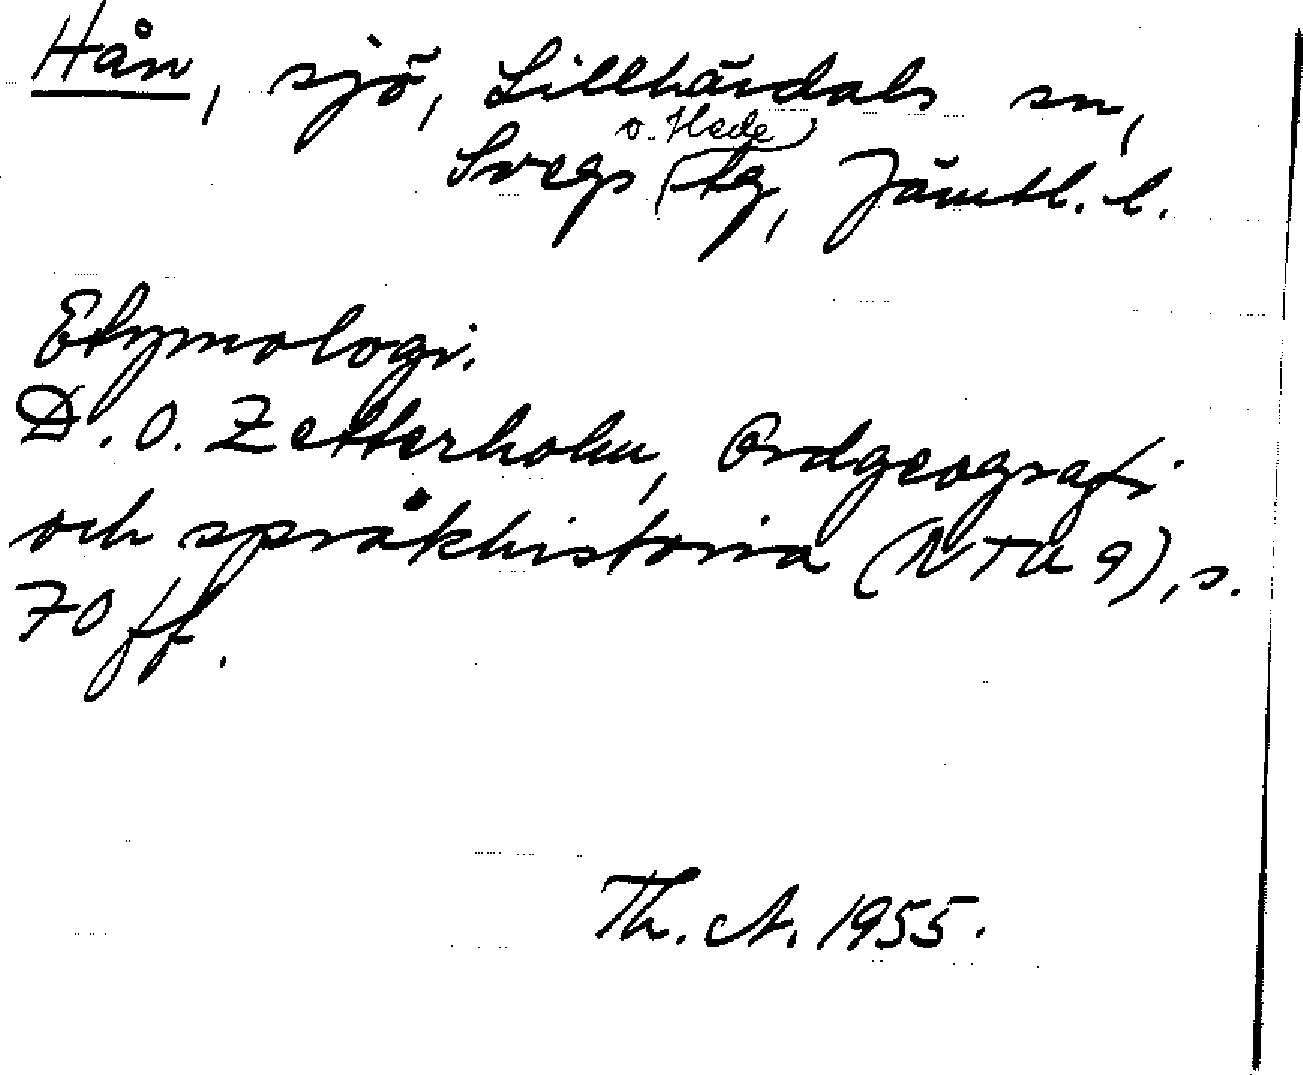 Hån, sjö, Lillhärdals sn,
o. Hede
Svegs tg, Jämtl. l.
Etymologi.
D. O. Zetterholm, Ordgeografi
och språkhistoria (NTU 9), s.
70 ff.
Th. A. 1955.